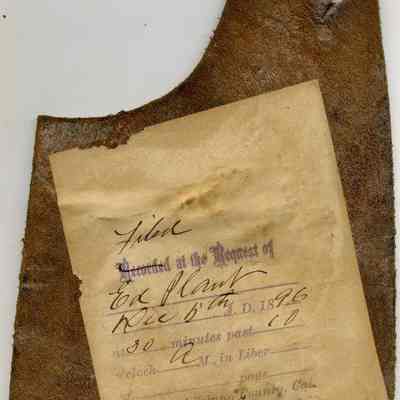 Filed
Recorded at the Request of
Ed Plant
Dec 5th A. D. 1896
at 30 minutes past 10
o'clock A M. in Liber
page
County, Cal.